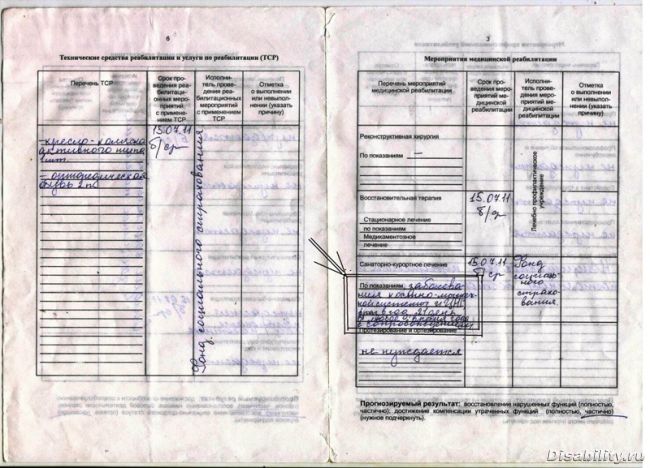 6
Технические средства реабилитации и услуги по реабилитации (ТСР)
Перечень ТСР
Срок про-
ведения реа-
билитаци-
онных меро-
приятий
с примене-
нием ТСР
Исполни-
тель прове-
дения реа-
билитационных
мероприятий
с применением
ТСР
Отметка
о выполнении
или невыпол-
нении (указать
причину)
кресло-коляска
активного типа
1шт.
ортопедическая
обувь 2п
15.07.11
б/ср
Фонд социального страхования
Мероприятия медицинской реабилитации
Перечень мероприятий
медицинской реабилитации
Срок про-
ведения меро-
приятий ме-
дицинской
реабилитации
Исполни-
тель прове-
дения меро-
приятий ме-
дицинской
реабилитации
Отметка
о выполнении
или невыпол-
нении (указать
причину)
Реконструктивная хирургия
По показаниям
Восстановительная терапия
15.07.11
б/ср
Стационарное лечение
по показаниям
Медикаментозное
лечение
Лечебно профилактическое
учреждение
Санаторно-курортное лечение
15.07.11
б/ср
Фонд
социаль-
ного
страхо-
вания.
По показаниям, заболева-
ния костно-мышеч-
ной системы и ЦНС
раз в год 21 день
с сопровождением
Протезирование и ортезирование
не нуждается
Прогнозируемый результат: восстановление нарушенных функций (полностью,
частично); достижение компенсации утраченных функций (полностью, частично)
(нужное подчеркнуть).
Disability.ru